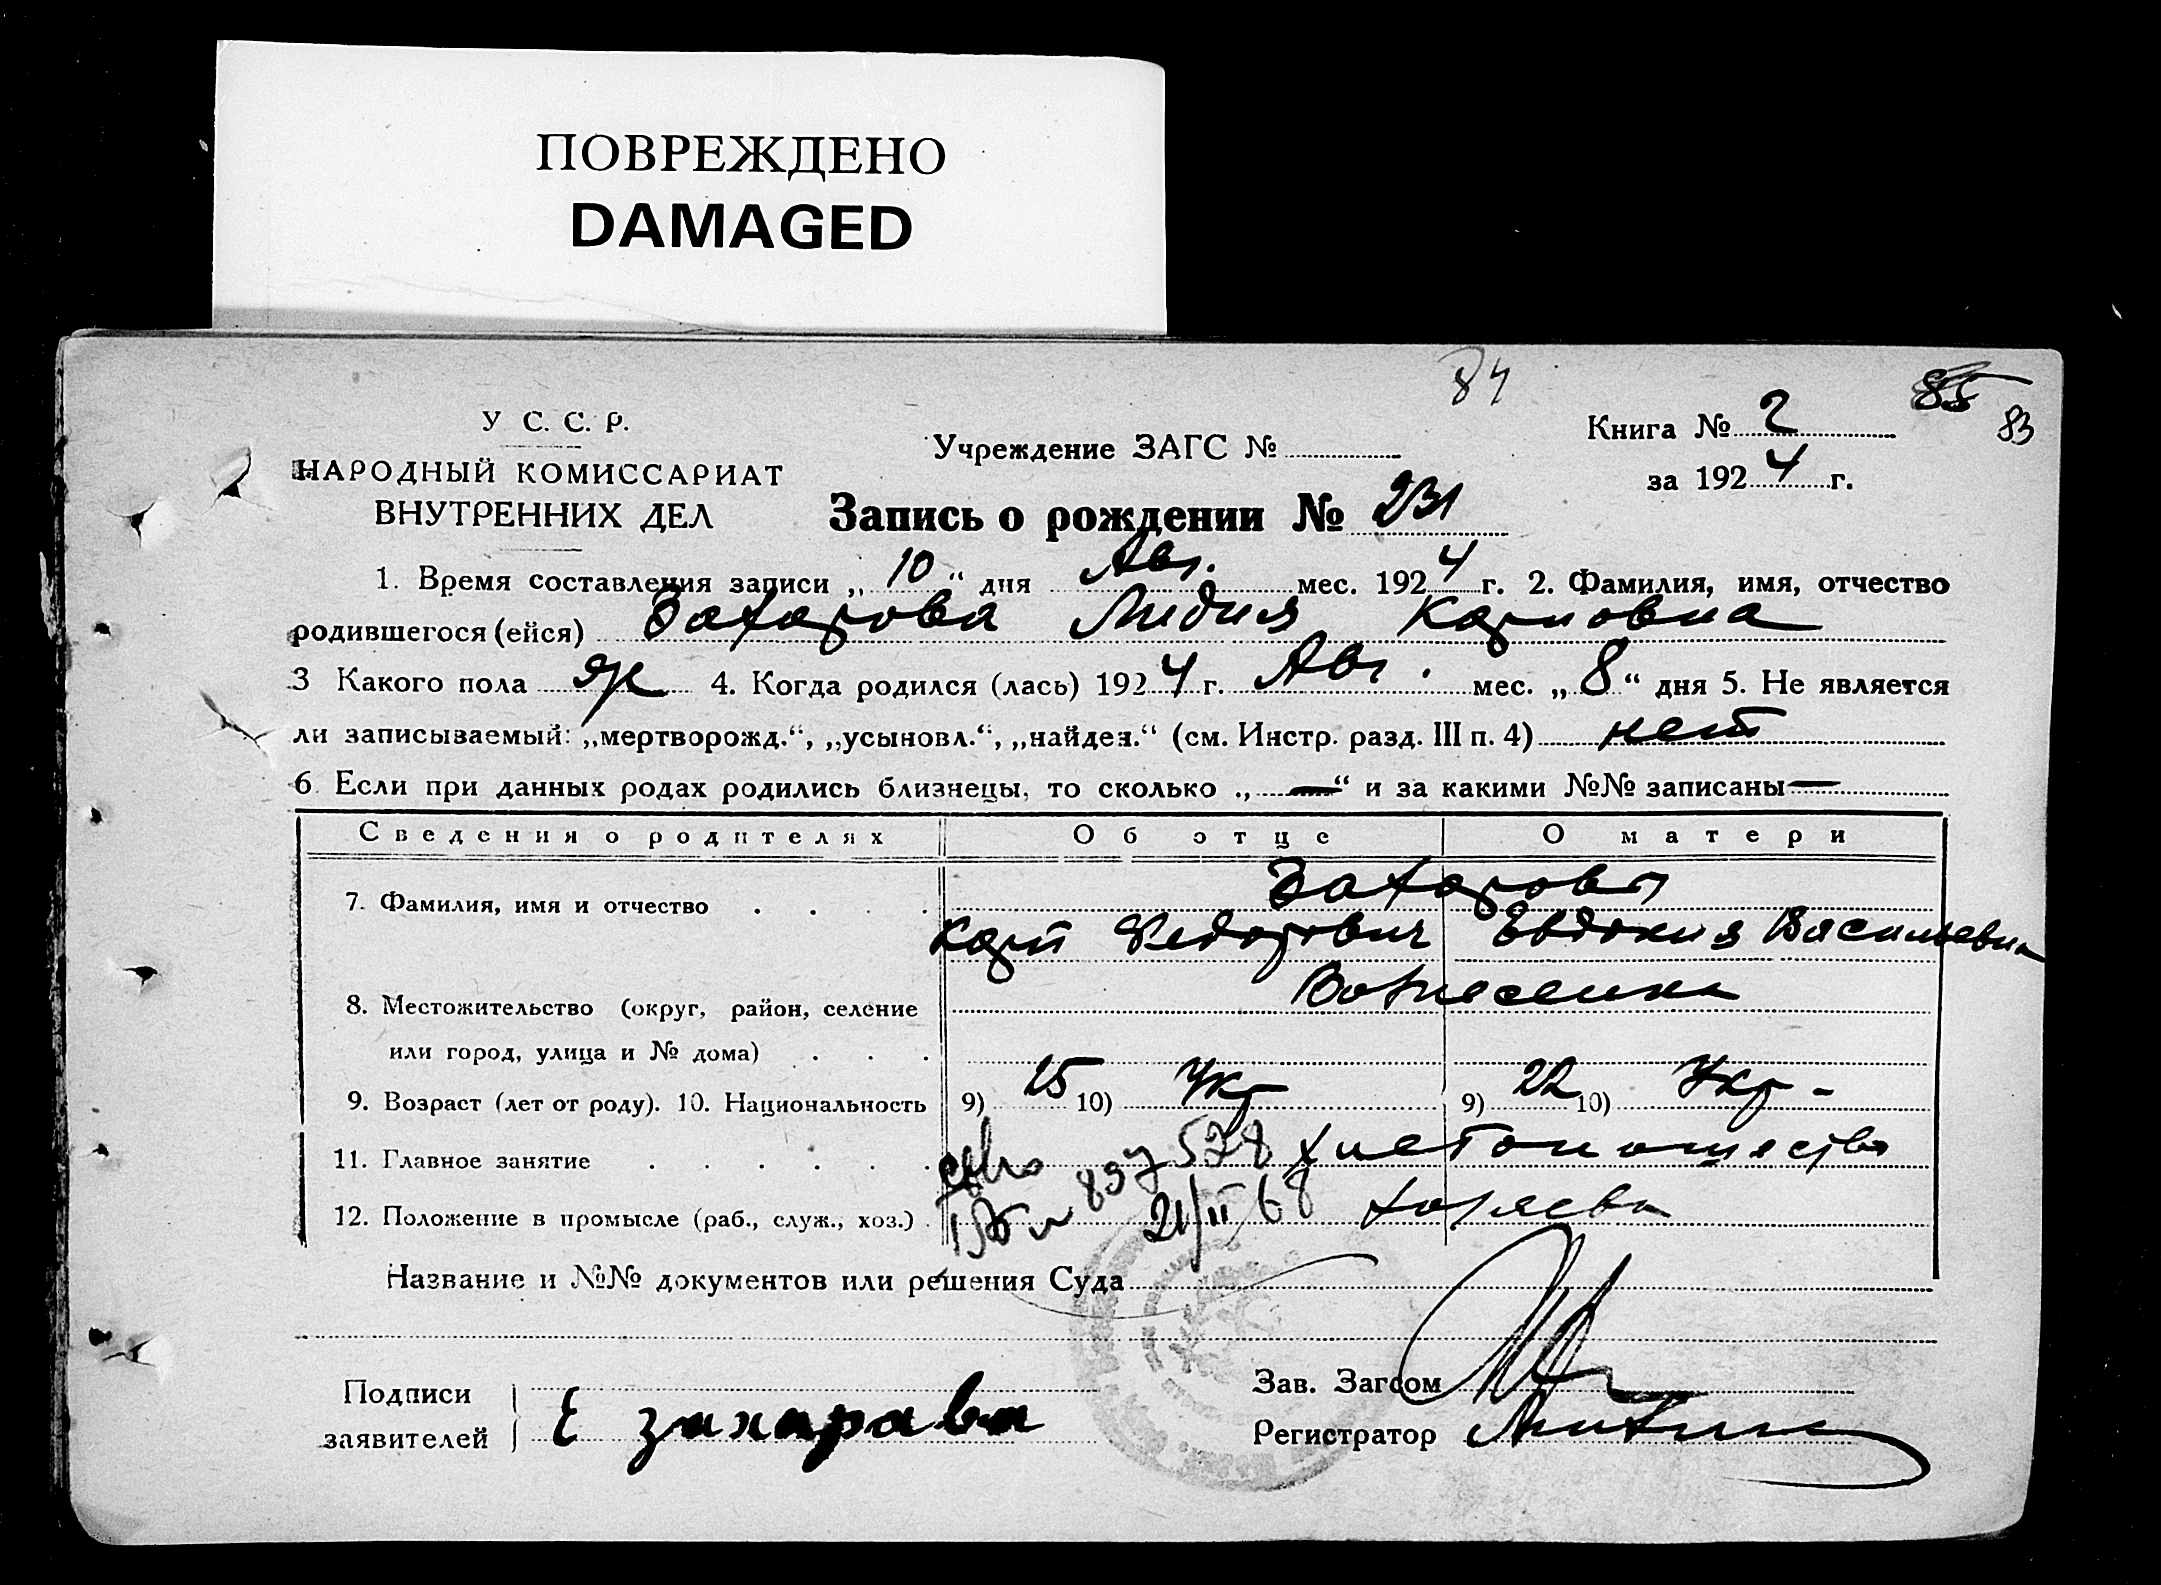 ПОВРЕЖДЕНО
DAMAGED
84
85
83
У С. С. Р.
НАРОДНЫЙ КОМИССАРИАТ
ВНУТРЕННИХ ДЕЛ
Учреждение ЗАГС №
Книга № 2
за 1924 г.
Запись о рождении № 231
1. Время составления записи „10“ дня Авг. мес. 1924 г. 2. Фамилия, имя, отчество
родившегося (ейся) Захарова Лидия Карповна
3 Какого пола ж 4. Когда родился (лась) 1924 г. Авг. мес. „8“ дня 5. Не является
ли записываемый: „мертворожд.“, „усыновл.“, „найден.“ (см. Инстр. разд. III п. 4) нет
6. Если при данных родах родились близнецы, то сколько „—“ и за какими №№ записаны —
Сведения о родителях Об отце О матери
Захаровы
7. Фамилия, имя и отчество
Карп Федорович Евдокия Васильевна
Вознесенка
8. Местожительство (округ, район, селение
или город, улица и № дома)
9. Возраст (лет от роду). 10. Национальность 9) 25 10) Укр 9) 22 10) Укр-
11. Главное занятие хлебопашество
837528
12. Положение в промысле (раб., служ., хоз.) хозяева
21/II 68
Название и №№ документов или решения Суда
Подписи
заявителей Е захарава
Зав. Загсом
Регистратор